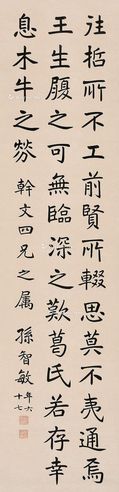 往哲所不工前賢所輟思莫不夷通焉
王生履之可無臨深之歎葛氏若存幸
息木牛之勞
幹文四兄之屬
孫智敏
年六
十七